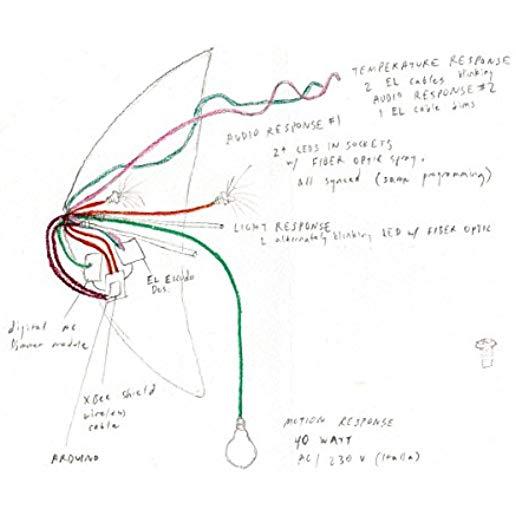 TEMPERATURE RESPONSE
2 EL cables blinking
AUDIO RESPONSE #2
1 EL cable dims
AUDIO RESPONSE #1
2+ LEDS IN SOCKETS
w/ FIBER OPTIC spray.
all synced (same programming)
LIGHT RESPONSE
2 alternately blinking LED w/ FIBER OPTIC
EL Escudo
Dos.
digital AC
Dimmer module
XBee shield
wireless
cable
ARDUINO
MOTION RESPONSE
40 WATT
AC/ 230 V (Italia)